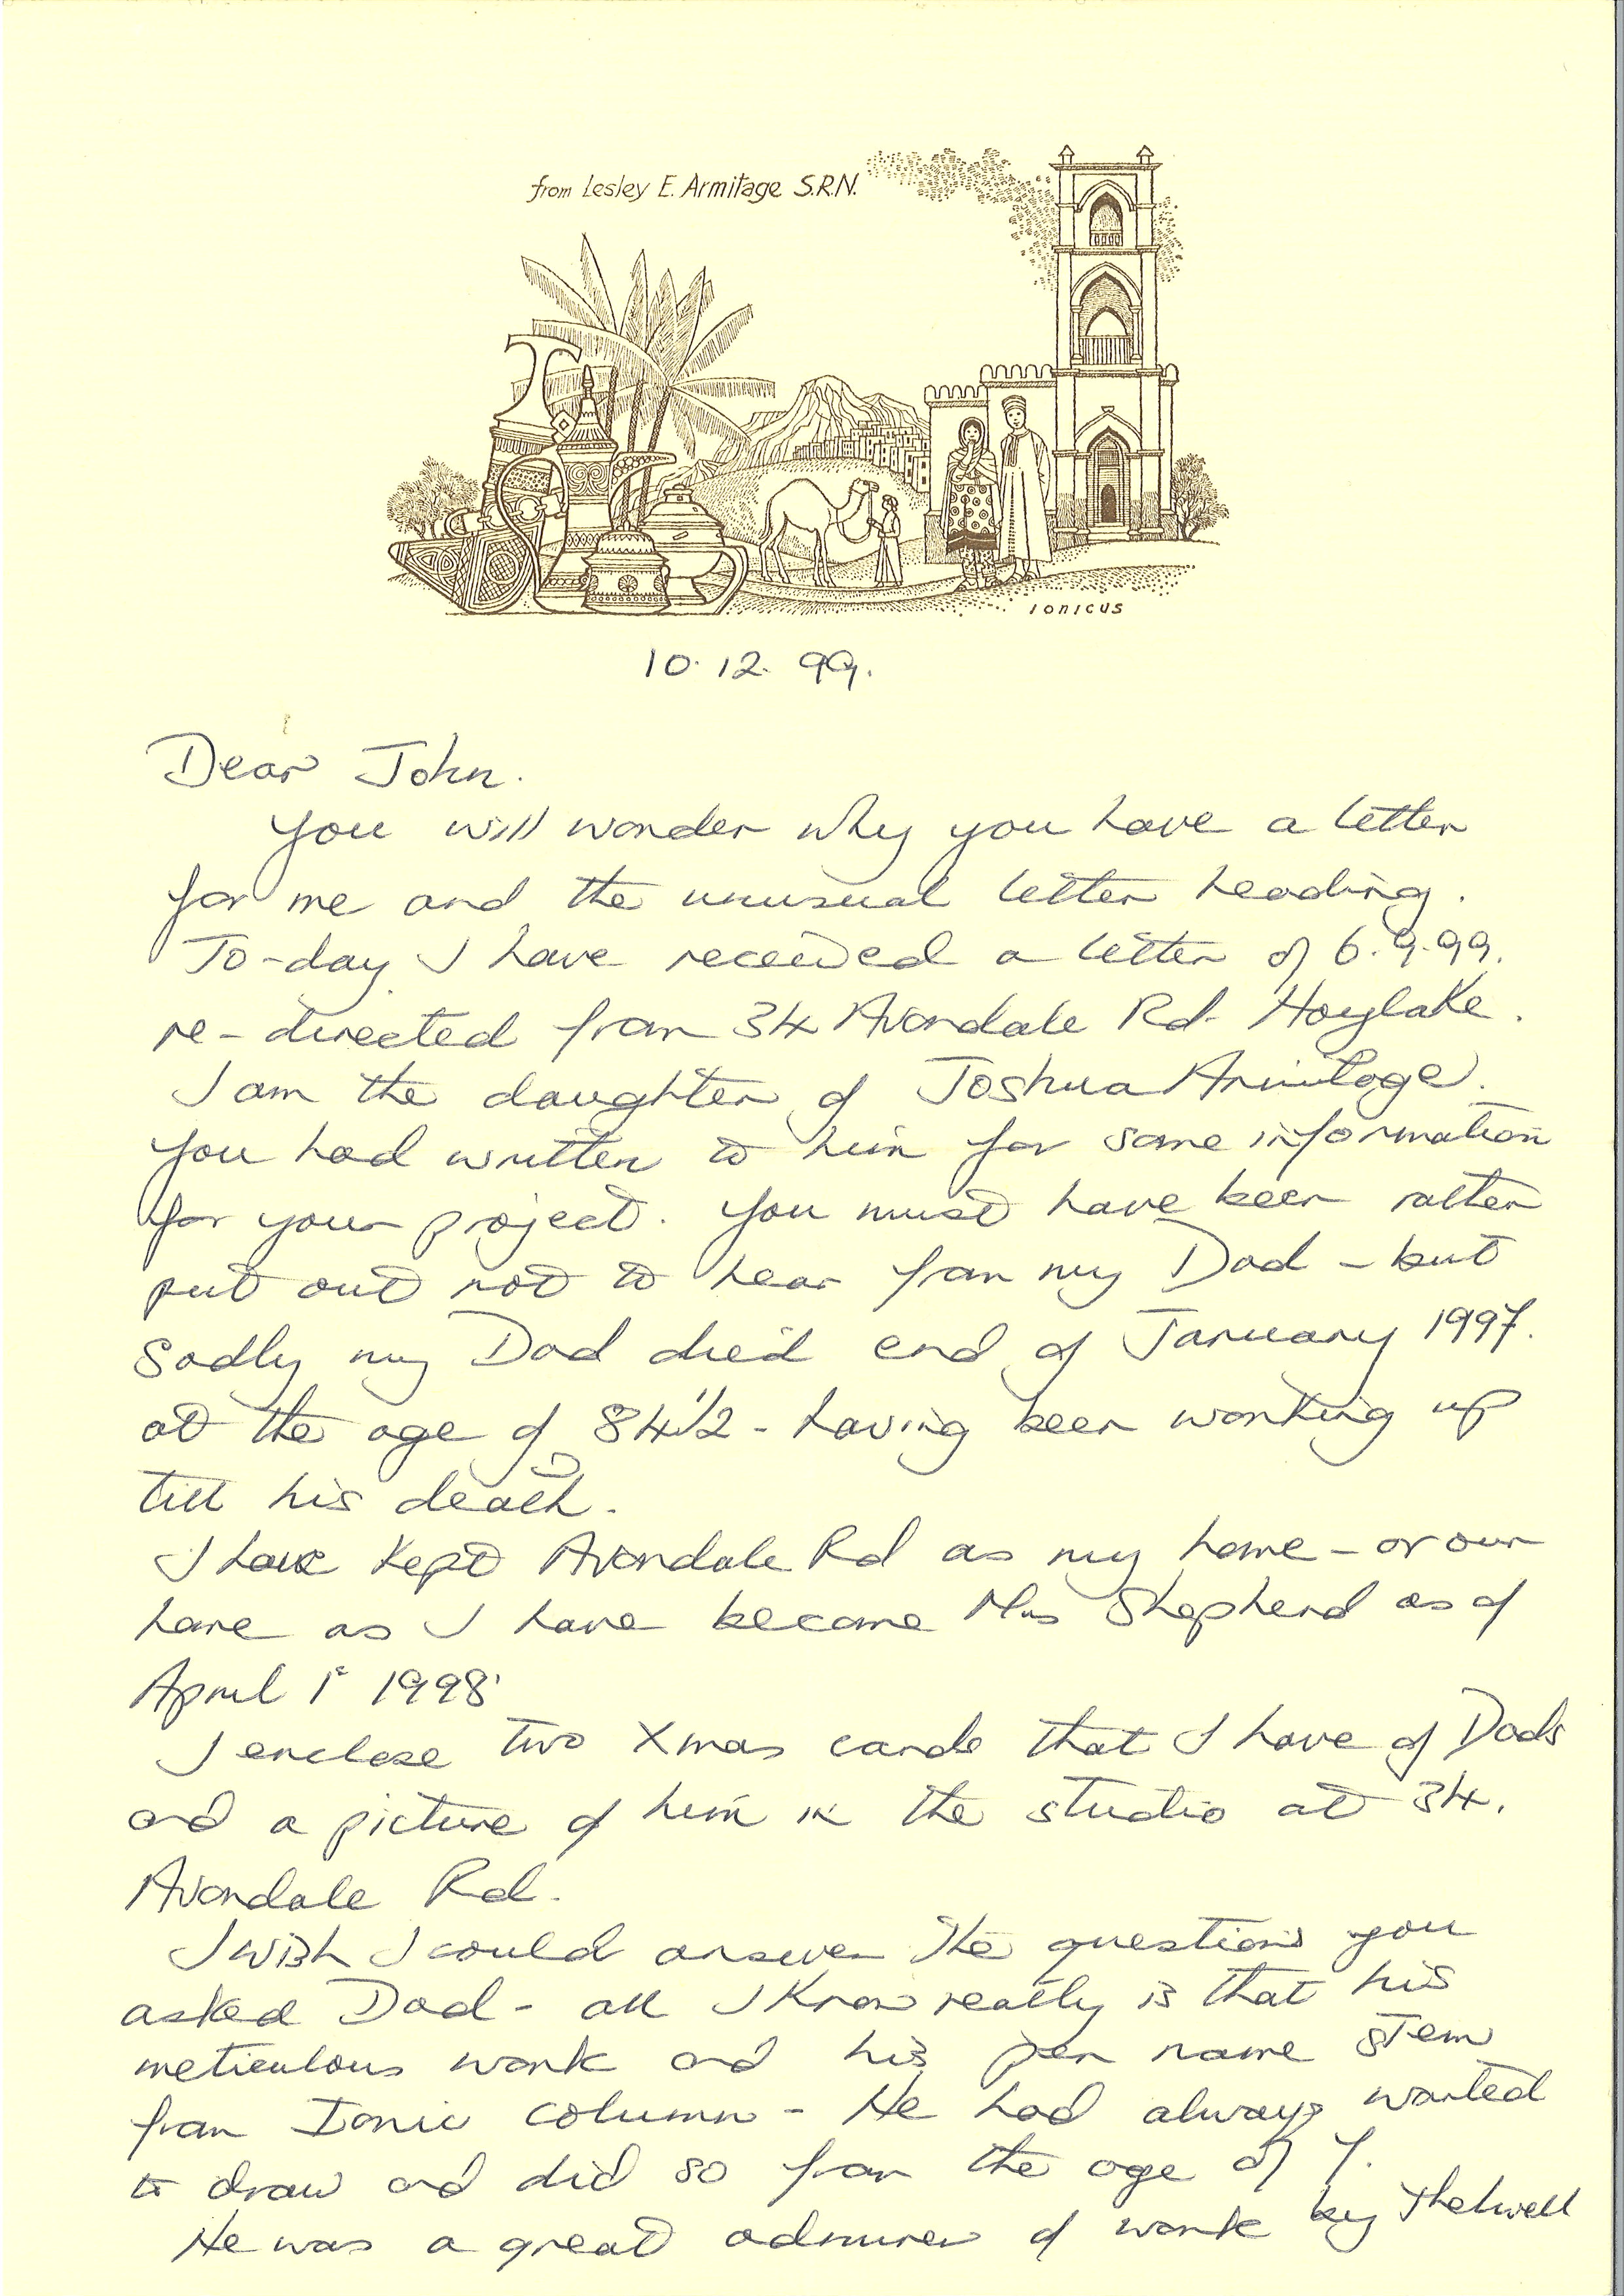 from Lesley E. Armitage S.R.N.
IONICUS
10.12.99.
Dear John.
You will wonder why you have a letter
for me and the unusual letter heading.
To-day I have received a letter of 6.9.99.
re-directed from 34 Avondale Rd. Hoylake.
I am the daughter of Joshua Armitage.
You had written to him for some information
for your project. You must have been rather
put out not to hear from my Dad - but
sadly my Dad died end of January 1997.
at the age of 84 1/2 - having been working up
till his death.
I have kept Avondale Rd as my home - or our
home as I have become Mrs Shepherd as of
April 1st 1998.
I enclose two Xmas cards that I have of Dads
and a picture of him in the studio at 34.
Avondale Rd.
I wish I could answer the questions you
asked Dad - all I know really is that his
meticulous work and his pen name stem
from Ionic column - He had always wanted
to draw and did so from the age of 7.
He was a great admirer of work by Thelwell